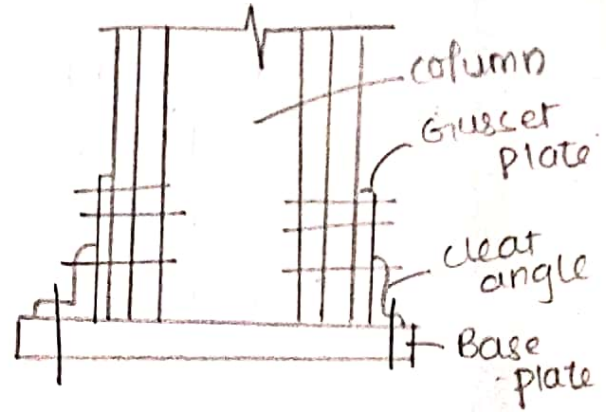 column
Gusset
plate
cleat
angle
Base
plate